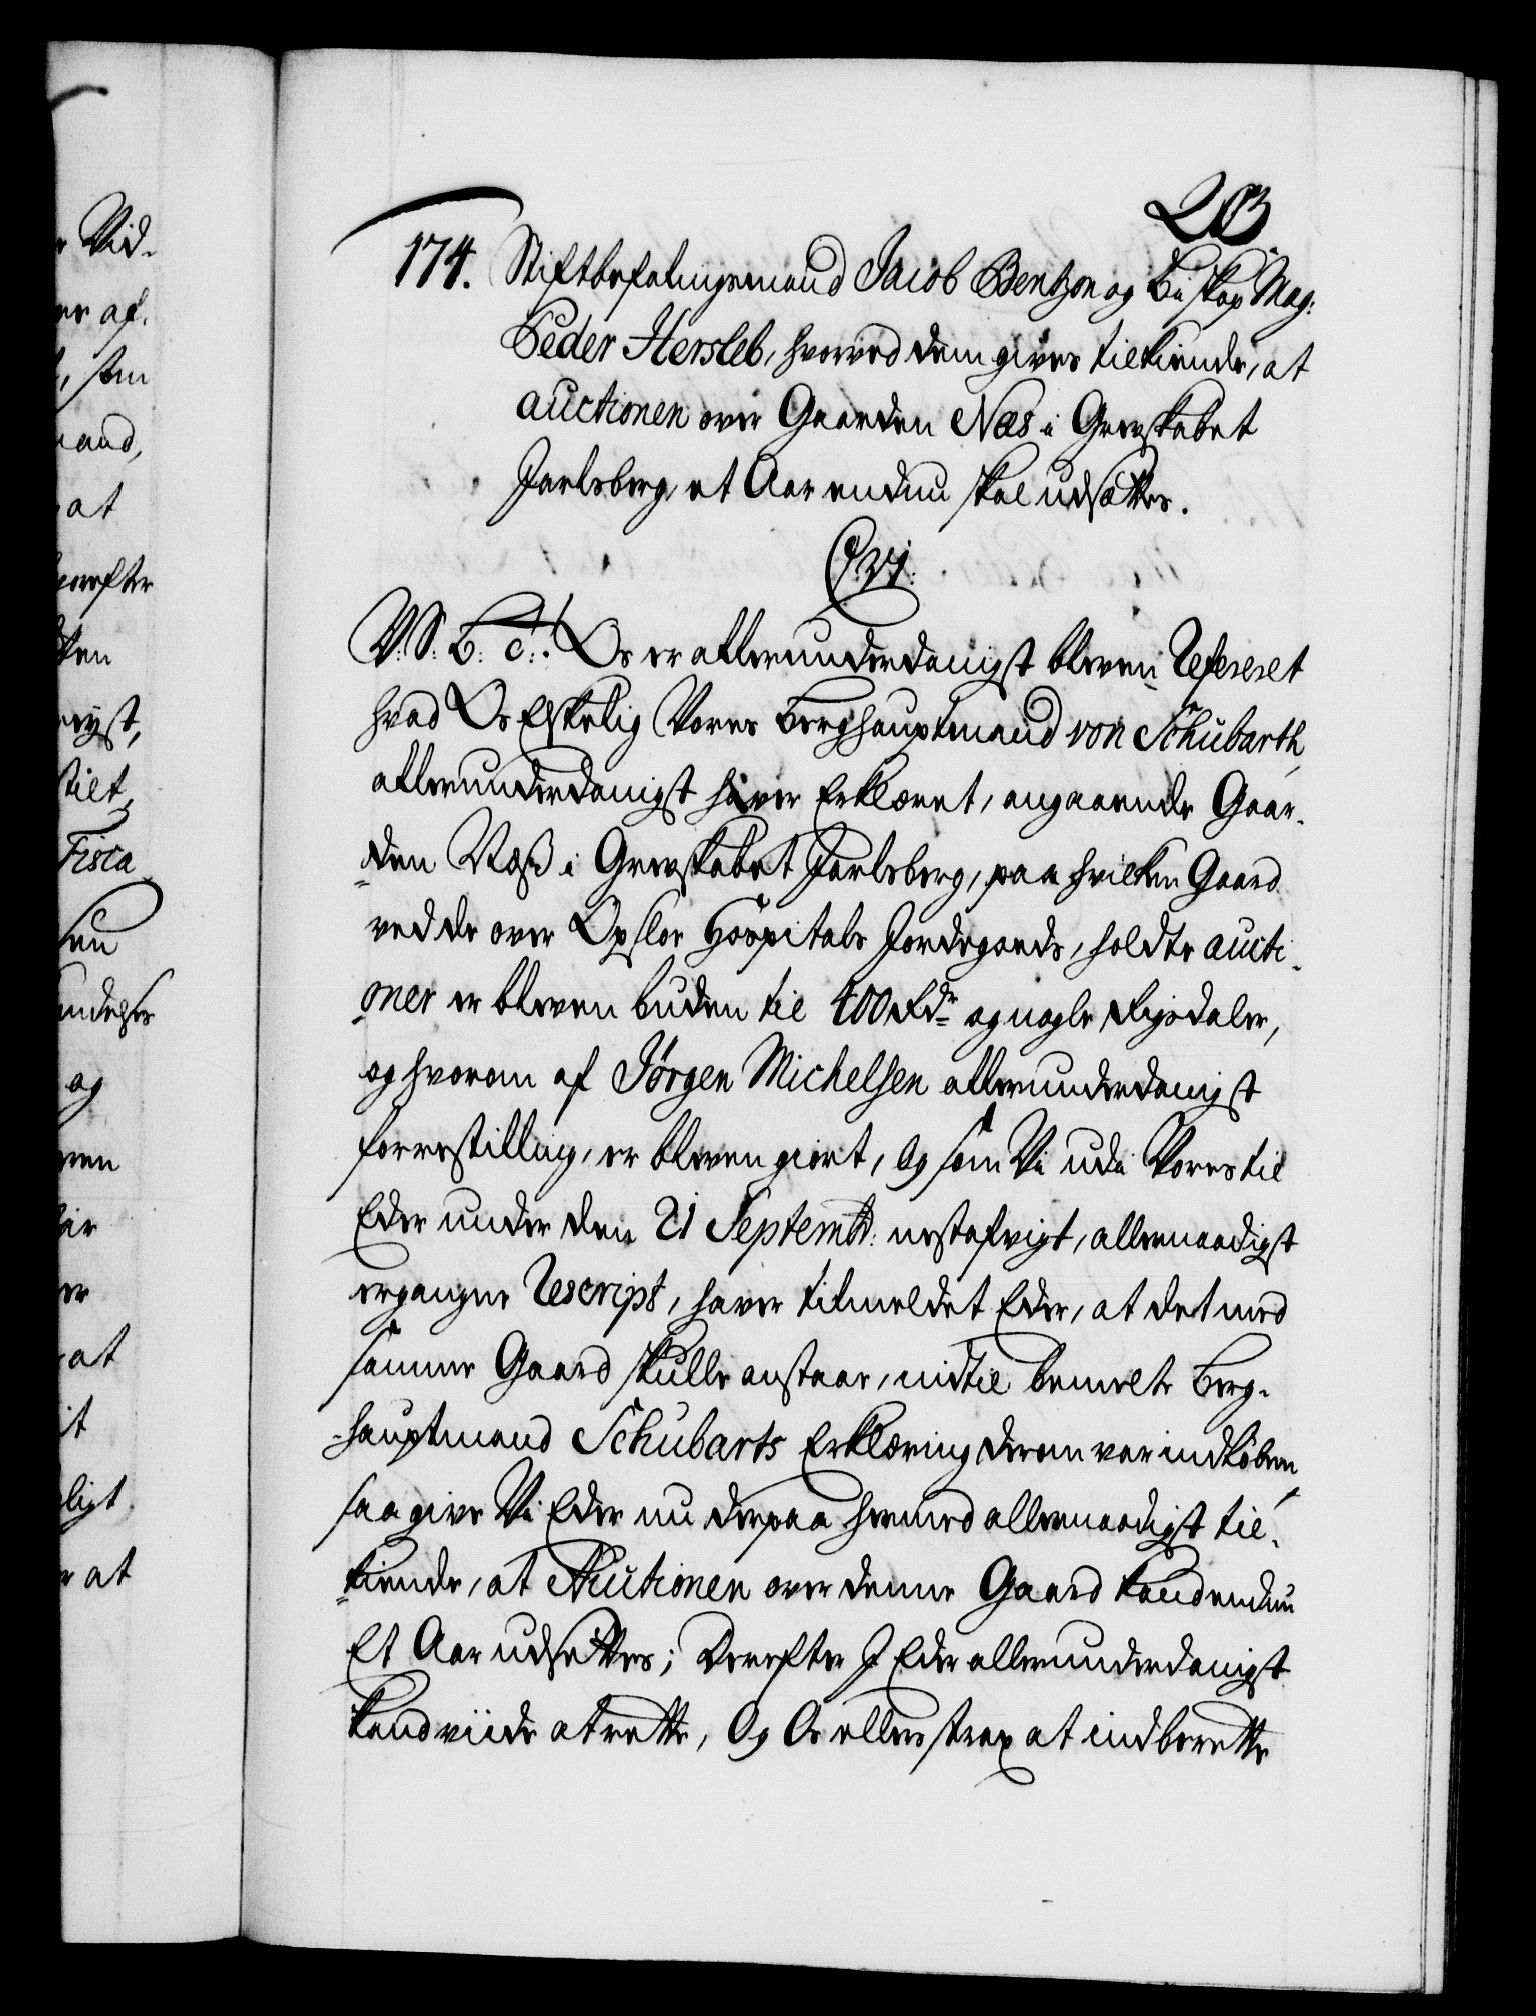 203
174. Stiftbefalingsmand Jacob Bentzon og Biskop Mag:
Peder Hersleb, hvorved dem gives tilkiende, at
auctionen over Gaarden Næs i Grevskabet
Jarlsberg, et Aar endnu skal udsættes.
C. VI.
V: S: B: C:. Os er allerunderdanigst bleven Refereret
hvad Os Elskelig Vores Berghauptmand von Schubarth
allerunderdanigst haver Erklæret, angaaende Gaar-
den Næss i Grevskabet Jarlsberg, paa hvilken Gaard
ved de over Opsloe Hospitals Jordegods, holdte aucti-
oner er bleven buden til 400 Rdr og nogle Rigsdaler,
og hvorom af Jörgen Michelsen allerunderdanigst
forrestilling, er bleven giort, Og som Vi udi Vores til
Eder under den 21 Septembr: nestafvigt, allernaadigst
ergangne Rescript, haver tilmeldet Eder, at det med
samme Gaard skulle anstaae, indtil bemelte Berg-
hauptmand Schubarts Erklæring derom var indkommen
saa give Vi Eder nu derpaa hermed allernaadigst til-
kiende, at Auctionen over denne Gaard kand endnu
Et Aar udsættes; Derefter I Eder allerunderdanigst
kand viide at rette, Og Os ellers strax at indberette
Vid-
er af.
, som
mand,
at
hvorefter
ken
st,
tilt
Fisca
sen
og
at
it
ligt
at